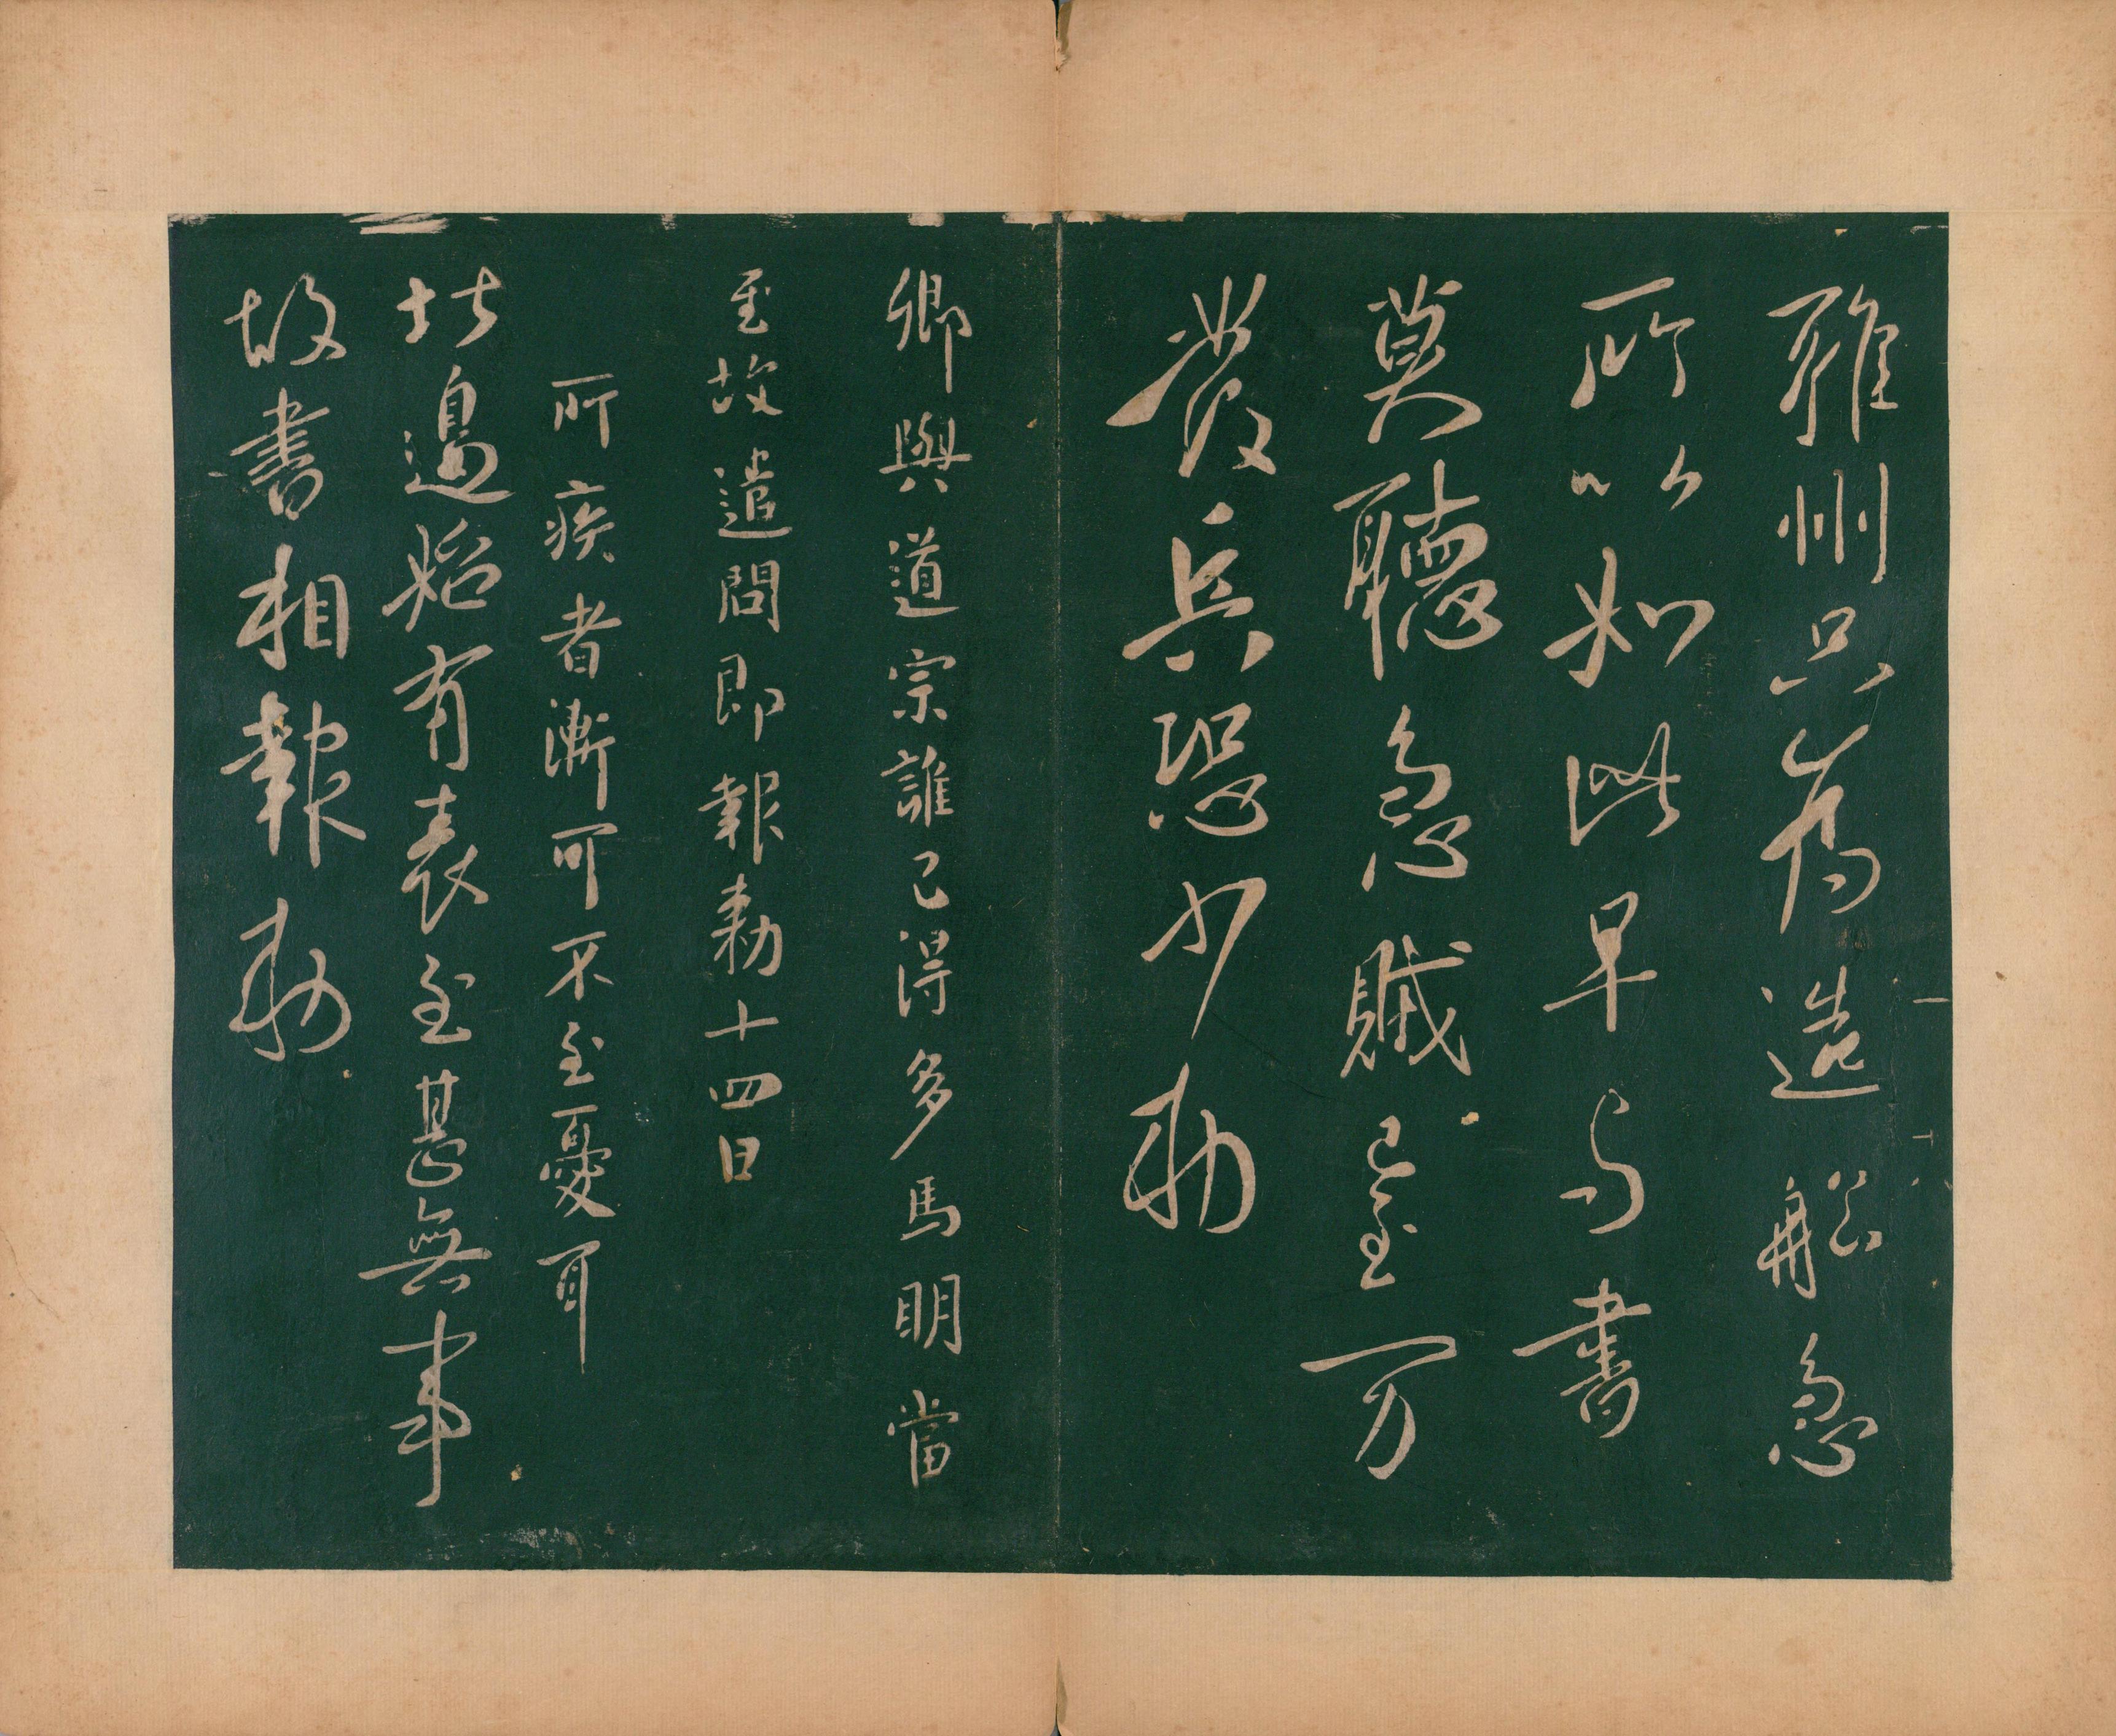 雅州只為造船急
所以如此早與書
莫聽急賊至万
發兵恐少勅
卿與道宗誰已得多馬明當
至故遣問即報勅十四日
所疾者漸可不至憂耳
北邊始有表至甚無事
故書相報勅
一
十八